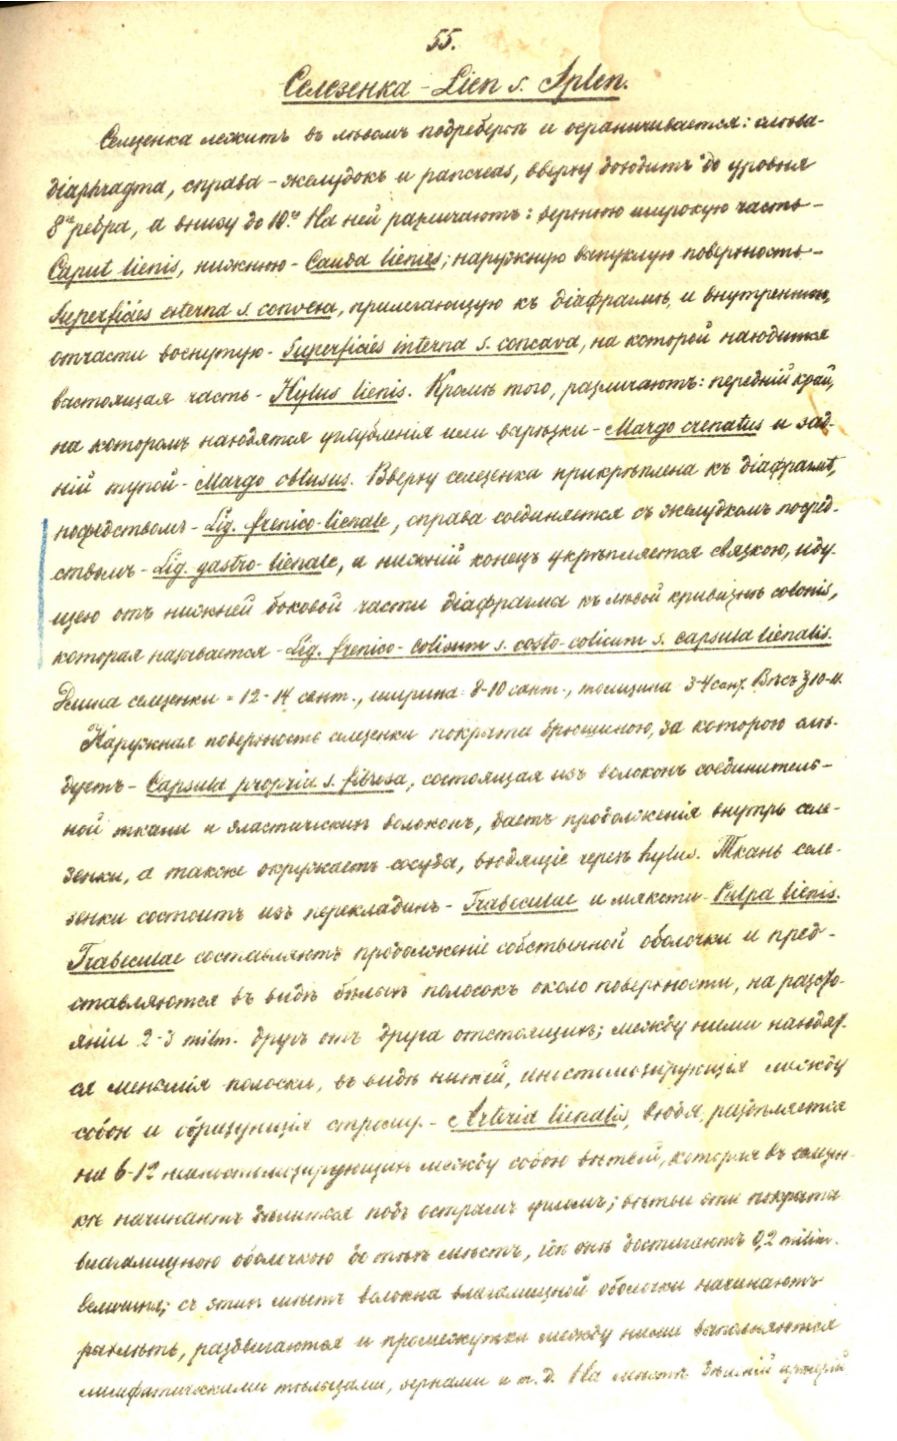 55.
Селезенка - Lien s. Splen.
Селезенка лежитъ въ лѣвомъ подреберьѣ и ограничивается: слѣва -
diaphragma, справа - желудокъ и pancreas, вверху доходитъ до уровня
8го ребра, а внизу до 10го. На ней различаютъ: верхнюю широкую часть -
Caput lienis, нижнюю - Cauda lienis; наружную выпуклую поверхность -
Superficies externa s. convexa, прилегающую къ діафрагмѣ, и внутреннюю,
отчасти вогнутую - Superficies interna s. concava, на которой находится
часть - Hylus lienis. Кромѣ того, различаютъ: передній край,
на которомъ находятся углубленія или вырѣзки - Margo crenatus и зад-
ній тупой - Margo obtusus. Вверху селезенка прикрѣплена къ діафрагмѣ,
посредствомъ - Lig. frenico-lienale, справа соединяется съ желудкомъ посред-
ствомъ - Lig. gastro-lienale, а нижній конецъ укрѣпляется связкою, иду-
щею отъ нижней боковой части діафрагма къ лѣвой кривизнѣ colonis,
которая называется - Lig. frenico-colicum s. costo-colicum s. capsula lienalis.
Длина селезенки = 12-14 сант., ширина 8-10 сант., толщина 3-4 сант. Вѣсъ ℥ 10-
Наружная поверхность селезенки покрыта брюшиною, за которою слѣ-
дуетъ - Capsula propria s. fibrosa, состоящая изъ волоконъ соединитель-
ной ткани и эластическихъ волоконъ, даетъ продолженія внутрь селе-
зенки, а также окружаетъ сосуды, входящіе черезъ hylus. Ткань селе-
зенки состоитъ изъ перекладинъ - Trabeculae и мякоти - Pulpa lienis.
Trabeculae составляютъ продолженіе собственной оболочки и пред-
ставляются въ видѣ бѣлыхъ полосокъ около поверхности, на разсто-
яніи 2-3 milm. другъ отъ друга отстоящихъ; между ними находят-
ся меньшія полоски, въ видѣ нитей, анастомозирующія между
собою и образующія строму. - Arteria lienalis, входя, раздѣляется
на 6- неанастомозирующихъ между собою вѣтвей, которыя въ селезен-
кѣ начинаютъ дѣлиться подъ острымъ угломъ; вѣтви эти покрыты
влагалищною оболочкою до тѣхъ мѣстъ, гдѣ онѣ достигаютъ 0,2 milim.
величины; съ этихъ мѣстъ волокна влагалищной оболочки начинаютъ
рѣдѣть, раздвигаются и промежутки между ними выполняются
лимфатическими тѣльцами, зернами и т. д. На мѣстѣ дѣленій артерій